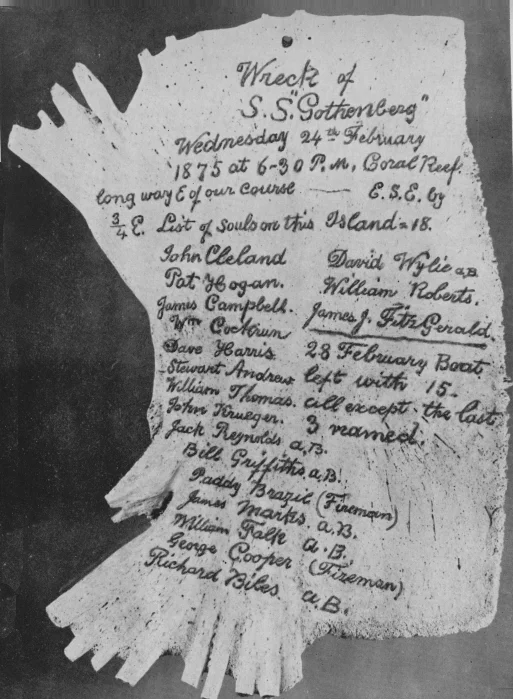 Wreck of
S.S. "Gothenberg"
Wednesday 24th February
1875 at 6-30 P.M, Coral Reef.
long way E of our course —— E.S.E. by
3/4 E. List of souls on this Island = 18.
John Cleland
Pat Hogan.
James Campbell.
Wm Cockrun
Dave Harris
Stewart Andrew
William Thomas.
John Krueger.
Jack Reynolds a.B.
Bill Griffiths a.B.
Paddy Brazil (Fireman)
James Marks a.B.
William Falk a.B.
George Cooper (Fireman)
Richard Biles a.B.
David Wylie a.B.
William Roberts.
James J. FitzGerald
28 February Boat
left with 15-
all except - the last
3 named.